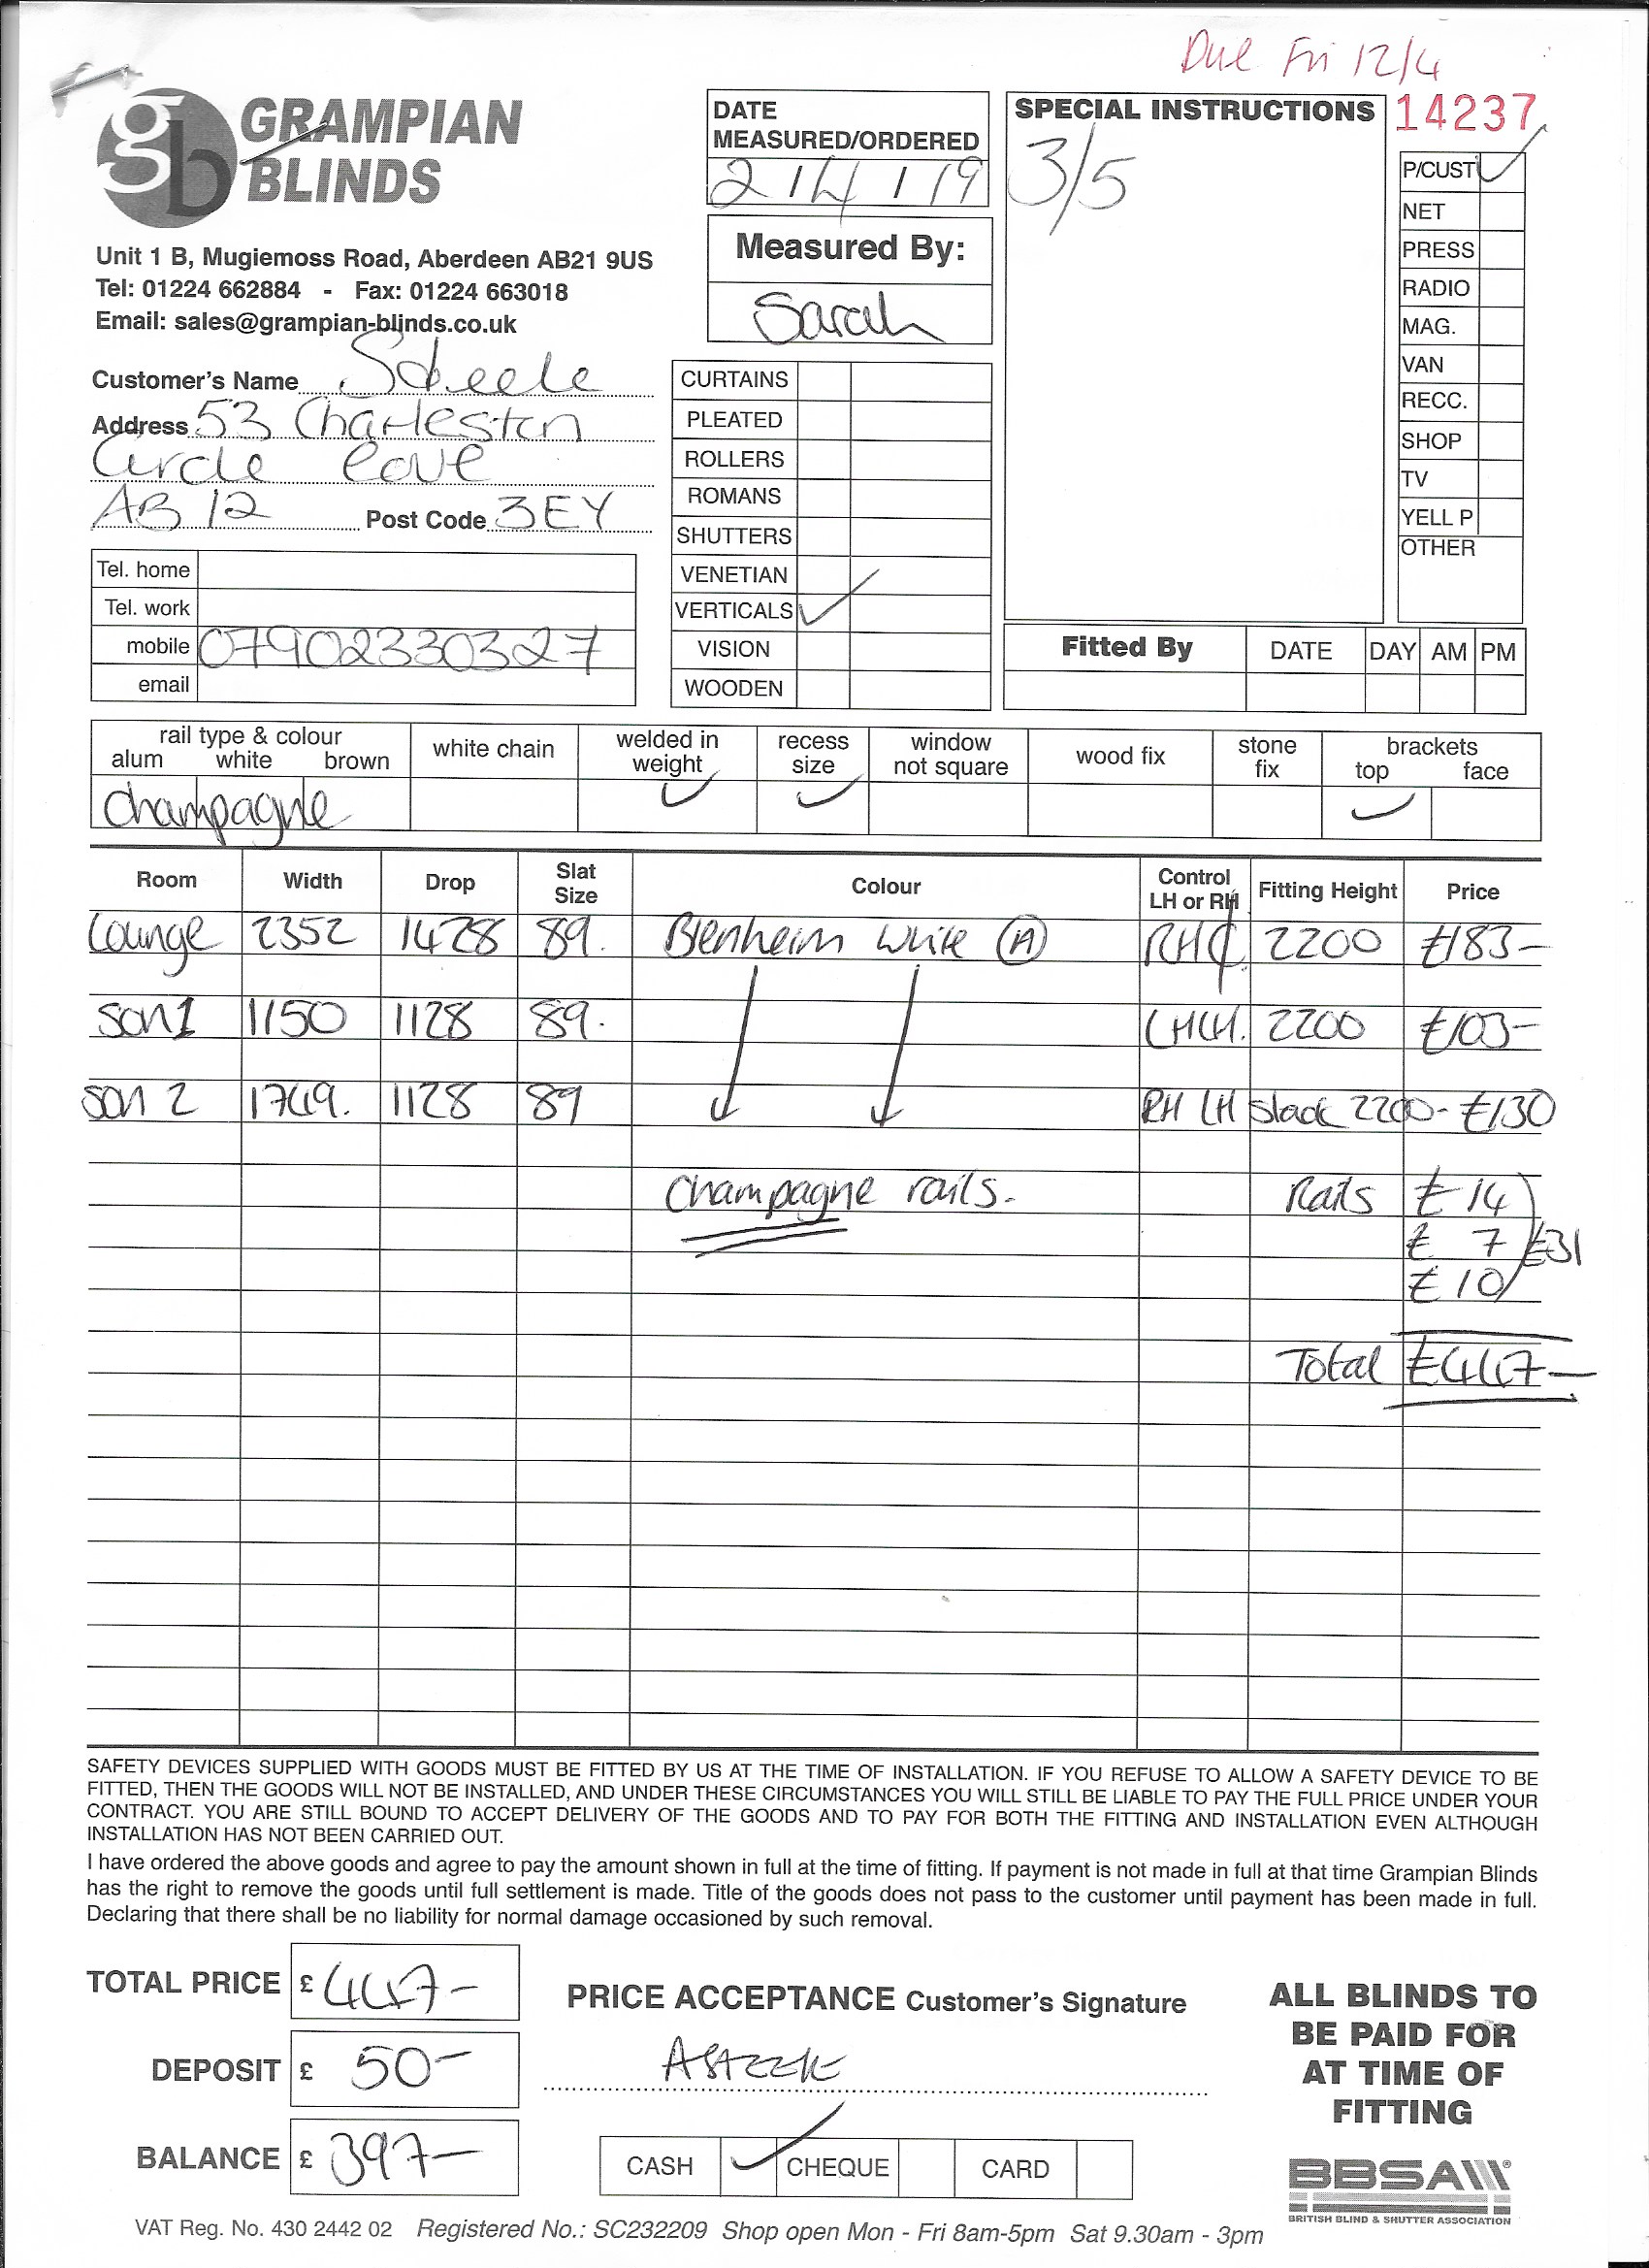 Due Fri 12/4
gb GRAMPIAN
BLINDS
Unit 1 B, Mugiemoss Road, Aberdeen AB21 9US
Tel: 01224 662884 - Fax: 01224 663018
Email: sales@grampian-blinds.co.uk
DATE
MEASURED/ORDERED
2/4/19
Measured By:
Sarah
SPECIAL INSTRUCTIONS
3/5
14237
P/CUST ✓
NET
PRESS
RADIO
MAG.
VAN
RECC.
SHOP
TV
YELL P
OTHER
Customer's Name Steele
Address 53 Charleston
Circle Cove
AB12 Post Code 3EY
Tel. home
Tel. work
mobile 07902330327
email
CURTAINS
PLEATED
ROLLERS
ROMANS
SHUTTERS
VENETIAN
VERTICALS ✓
VISION
WOODEN
Fitted By DATE DAY AM PM
rail type & colour white chain welded in weight recess size window not square wood fix stone fix brackets
alum white brown top face
Champagne ✓ ✓ ✓
Room Width Drop Slat Size Colour Control LH or RH Fitting Height Price
Lounge 2352 1428 89. Blenheim White (A) RH 2200 £183-
Son 1 1150 1128 89. LHLH. 2200 £103-
Son 2 1749. 1128 89 RH LH stack 2200- £130
Champagne rails. Rails £14
£ 7 £31
£10
Total £447-
SAFETY DEVICES SUPPLIED WITH GOODS MUST BE FITTED BY US AT THE TIME OF INSTALLATION. IF YOU REFUSE TO ALLOW A SAFETY DEVICE TO BE
FITTED, THEN THE GOODS WILL NOT BE INSTALLED, AND UNDER THESE CIRCUMSTANCES YOU WILL STILL BE LIABLE TO PAY THE FULL PRICE UNDER YOUR
CONTRACT. YOU ARE STILL BOUND TO ACCEPT DELIVERY OF THE GOODS AND TO PAY FOR BOTH THE FITTING AND INSTALLATION EVEN ALTHOUGH
INSTALLATION HAS NOT BEEN CARRIED OUT.
I have ordered the above goods and agree to pay the amount shown in full at the time of fitting. If payment is not made in full at that time Grampian Blinds
has the right to remove the goods until full settlement is made. Title of the goods does not pass to the customer until payment has been made in full.
Declaring that there shall be no liability for normal damage occasioned by such removal.
TOTAL PRICE £ 447-
DEPOSIT £ 50-
BALANCE £ 397-
PRICE ACCEPTANCE Customer's Signature
CASH ✓ CHEQUE CARD
ALL BLINDS TO
BE PAID FOR
AT TIME OF
FITTING
BBSA
BRITISH BLIND & SHUTTER ASSOCIATION
VAT Reg. No. 430 2442 02 Registered No.: SC232209 Shop open Mon - Fri 8am-5pm Sat 9.30am - 3pm